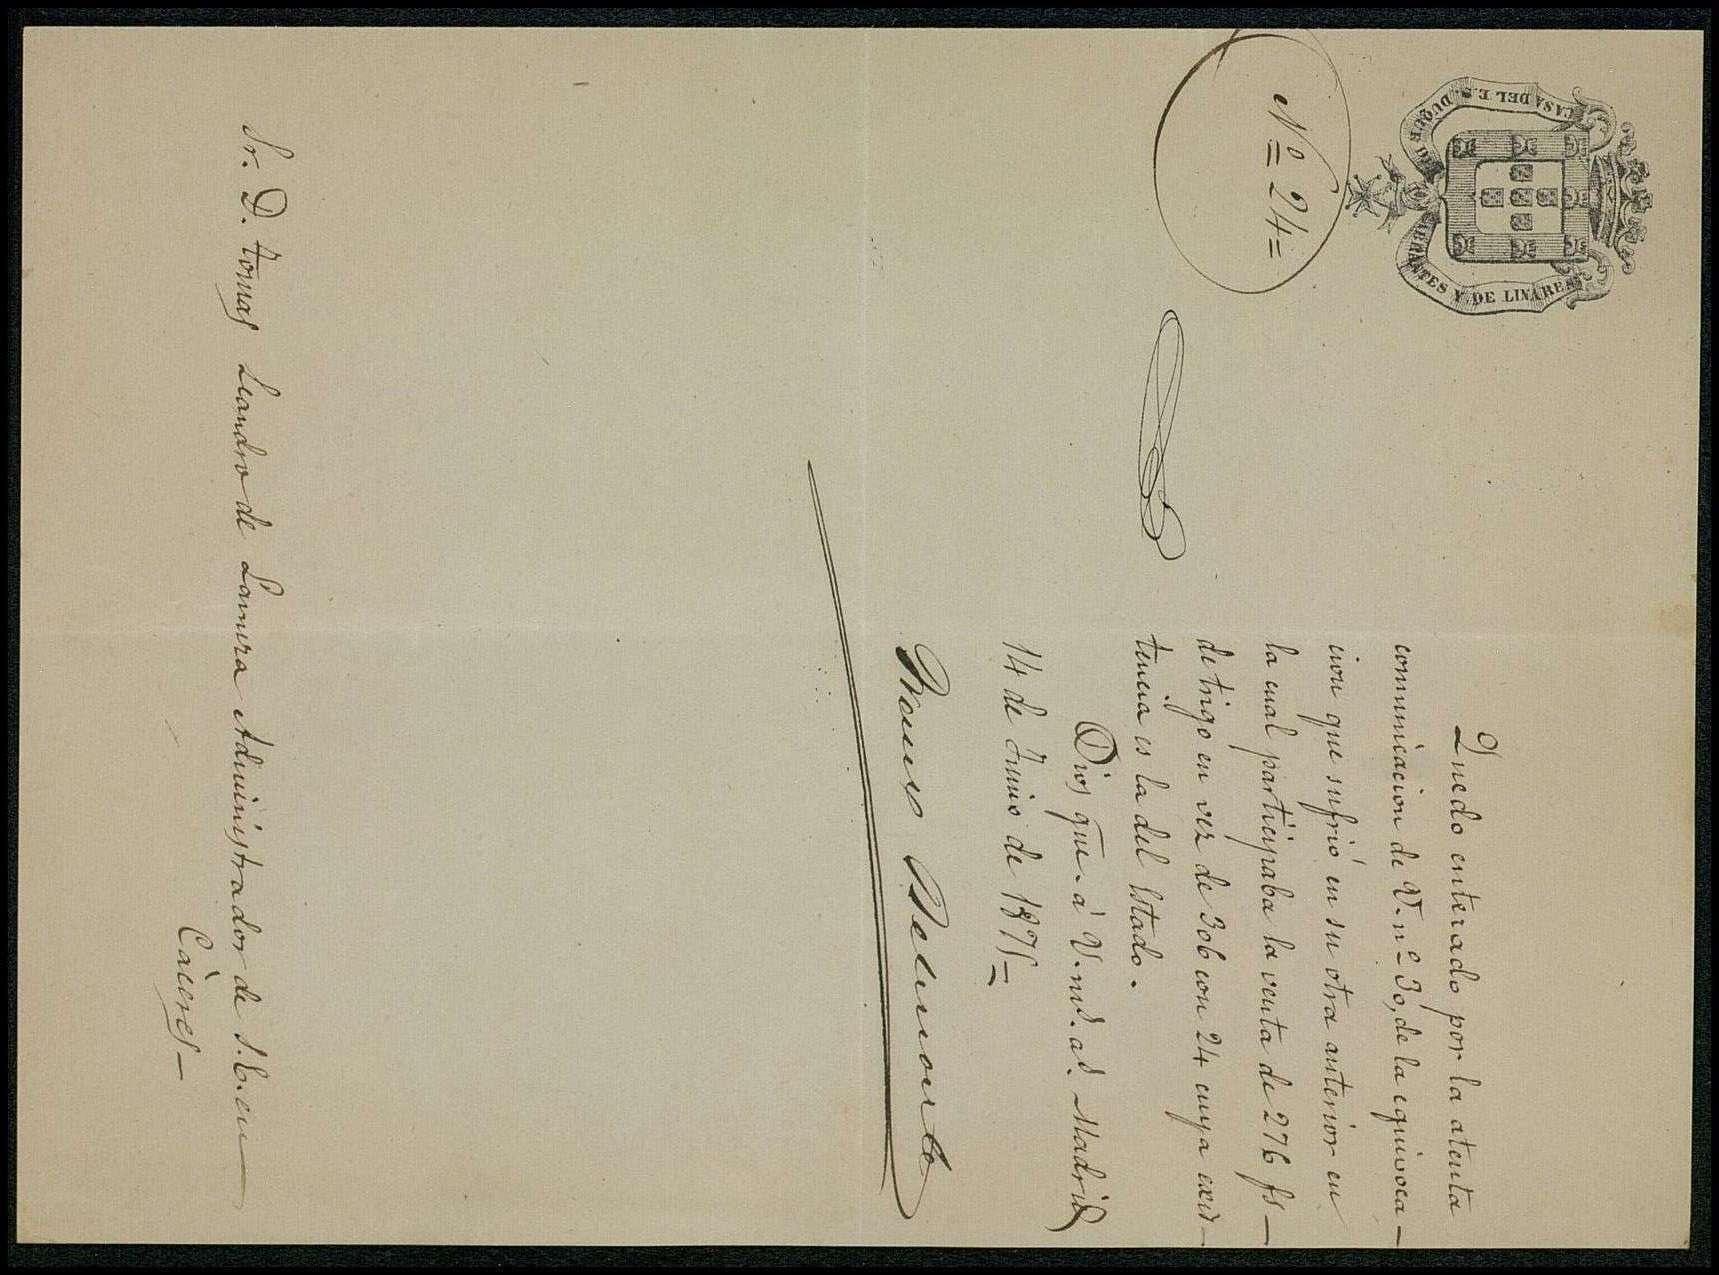 CASA DEL E.S. DUQUE DE ABRANTES Y DE LINARES
Nº 24=
Quedo enterado por la atenta
comunicacion de V. nº 30, de la equivoca-
cion que sufrió en su otra anterior en
la cual participaba la venta de 276 fs-
de trigo en vez de 306 con 24 cuya exis-
tencia es la del Estado.
Dios gue. á V. ms. as. Madrid
14 de Junio de 1875=
Belmonte
Sr. D. Tomas Leandro de Lamera Administrador de S.E. en
Cáceres-